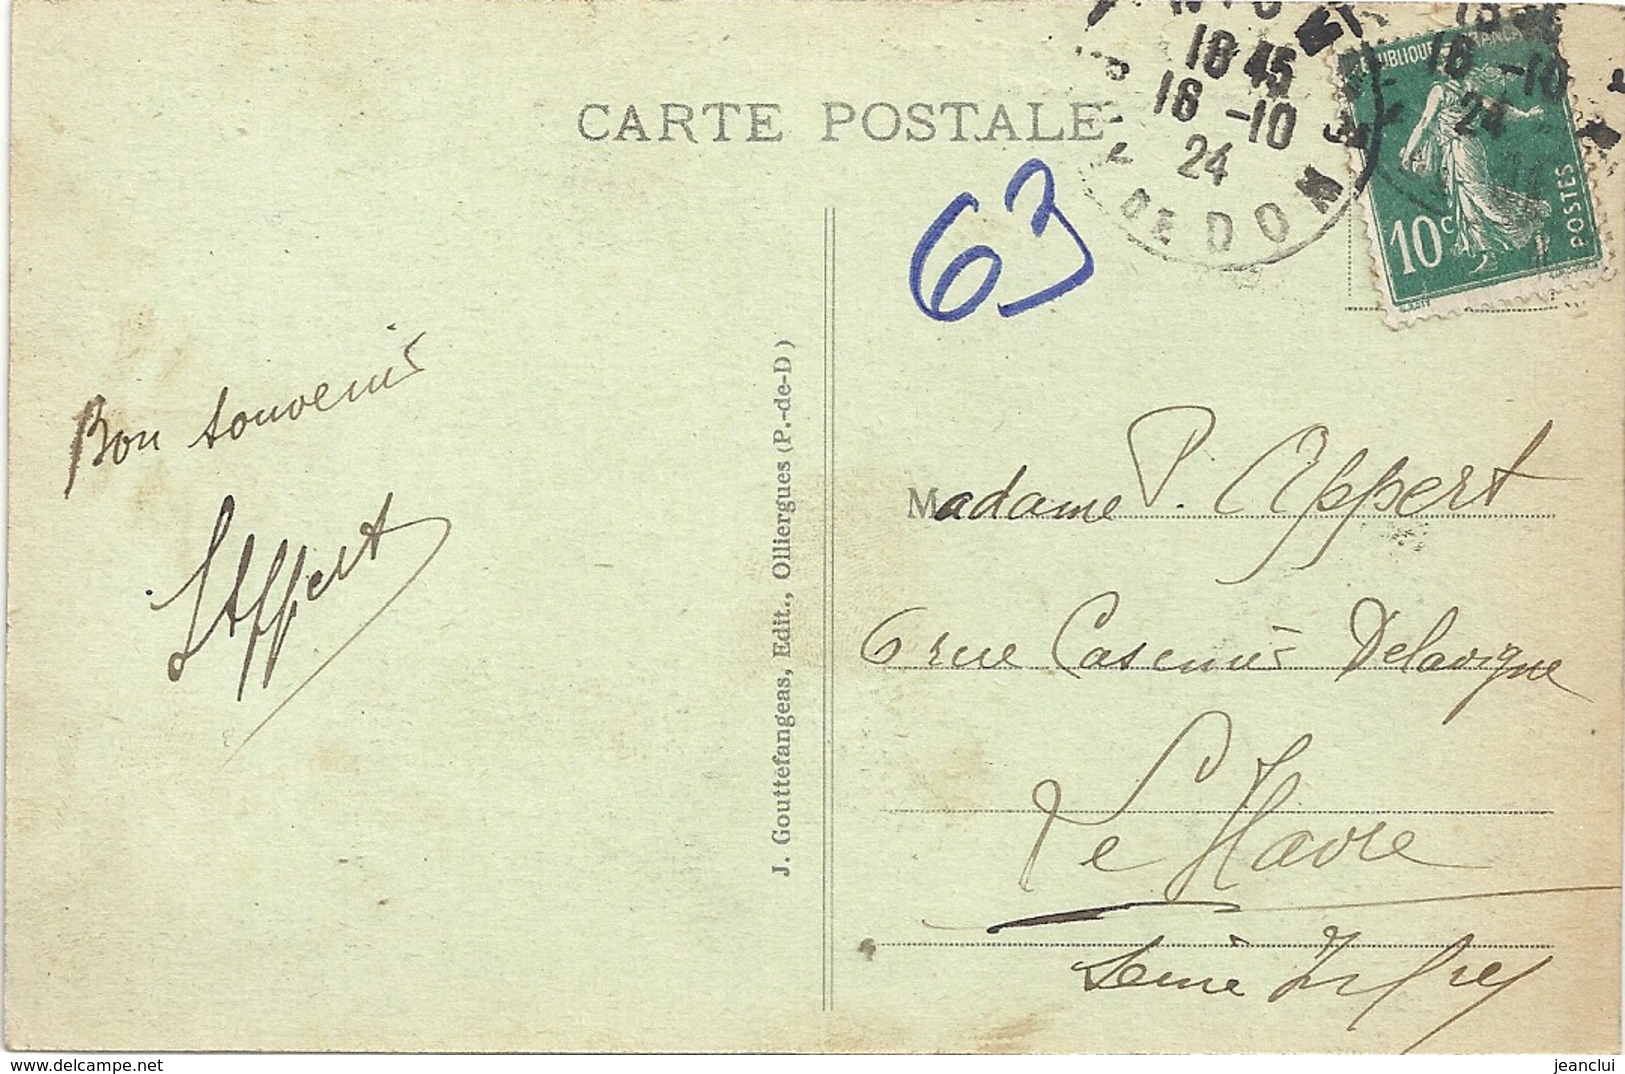 CARTE POSTALE
18 45
16 -10
24
PUY DE DOM
18 45
16 -10
24
REPUBLIQUE FRANÇAISE
10c
POSTES
63
Bon souvenir
LAppert
J. Gouttefangeas, Edit., Olliergues (P.-de-D)
Madame P. Appert
6 rue Casimir Delavigne
Le Havre
Seine Infre
jeanclui